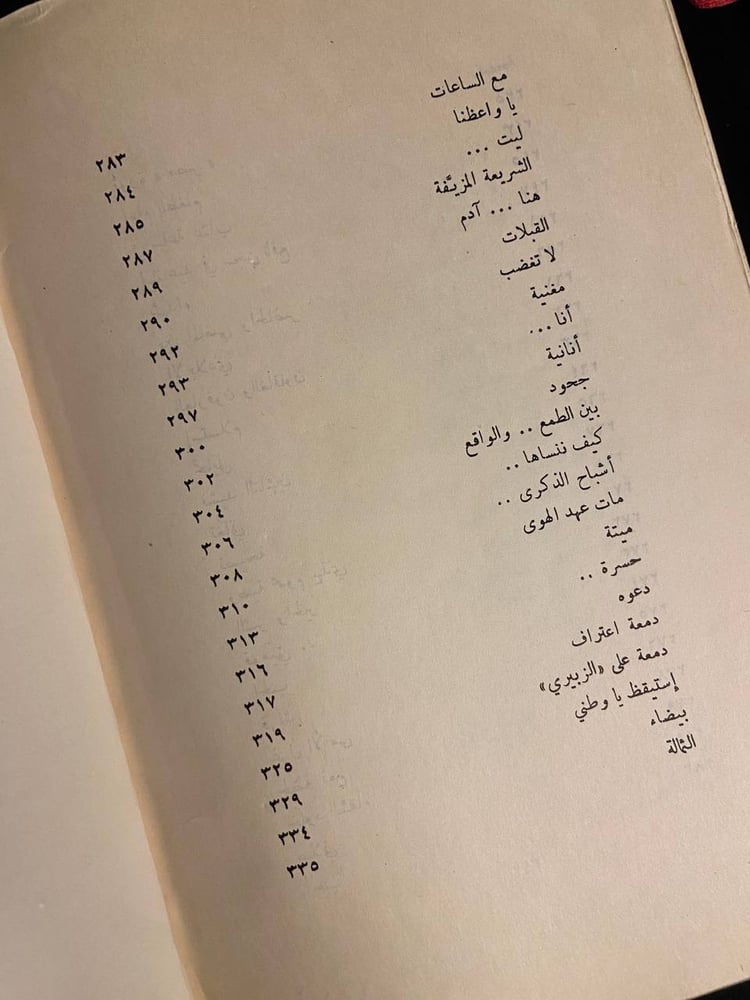 مع الساعات ٢٨٣
يا واعظنا ٢٨٤
ليت ... ٢٨٥
الشريعة المزيّفة ٢٨٧
هنا ... آدم ٢٨٩
القبلات ٢٩٠
لا تغضب ٢٩٢
مغنية ٢٩٣
أنا ... ٢٩٧
أنانية ٣٠٠
جحود ٣٠٢
بين الطمع .. والواقع ٣٠٤
كيف ننساها .. ٣٠٦
أشباح الذكرى .. ٣٠٨
مات عهد الهوى ٣١٠
ميتة ٣١٣
حسرة .. ٣١٦
دعوه ٣١٧
دمعة اعتراف ٣١٩
دمعة على «الزبيري» ٣٢٥
إستيقظ يا وطني ٣٢٩
بيضاء ٣٣٤
الثمالة ٣٣٥